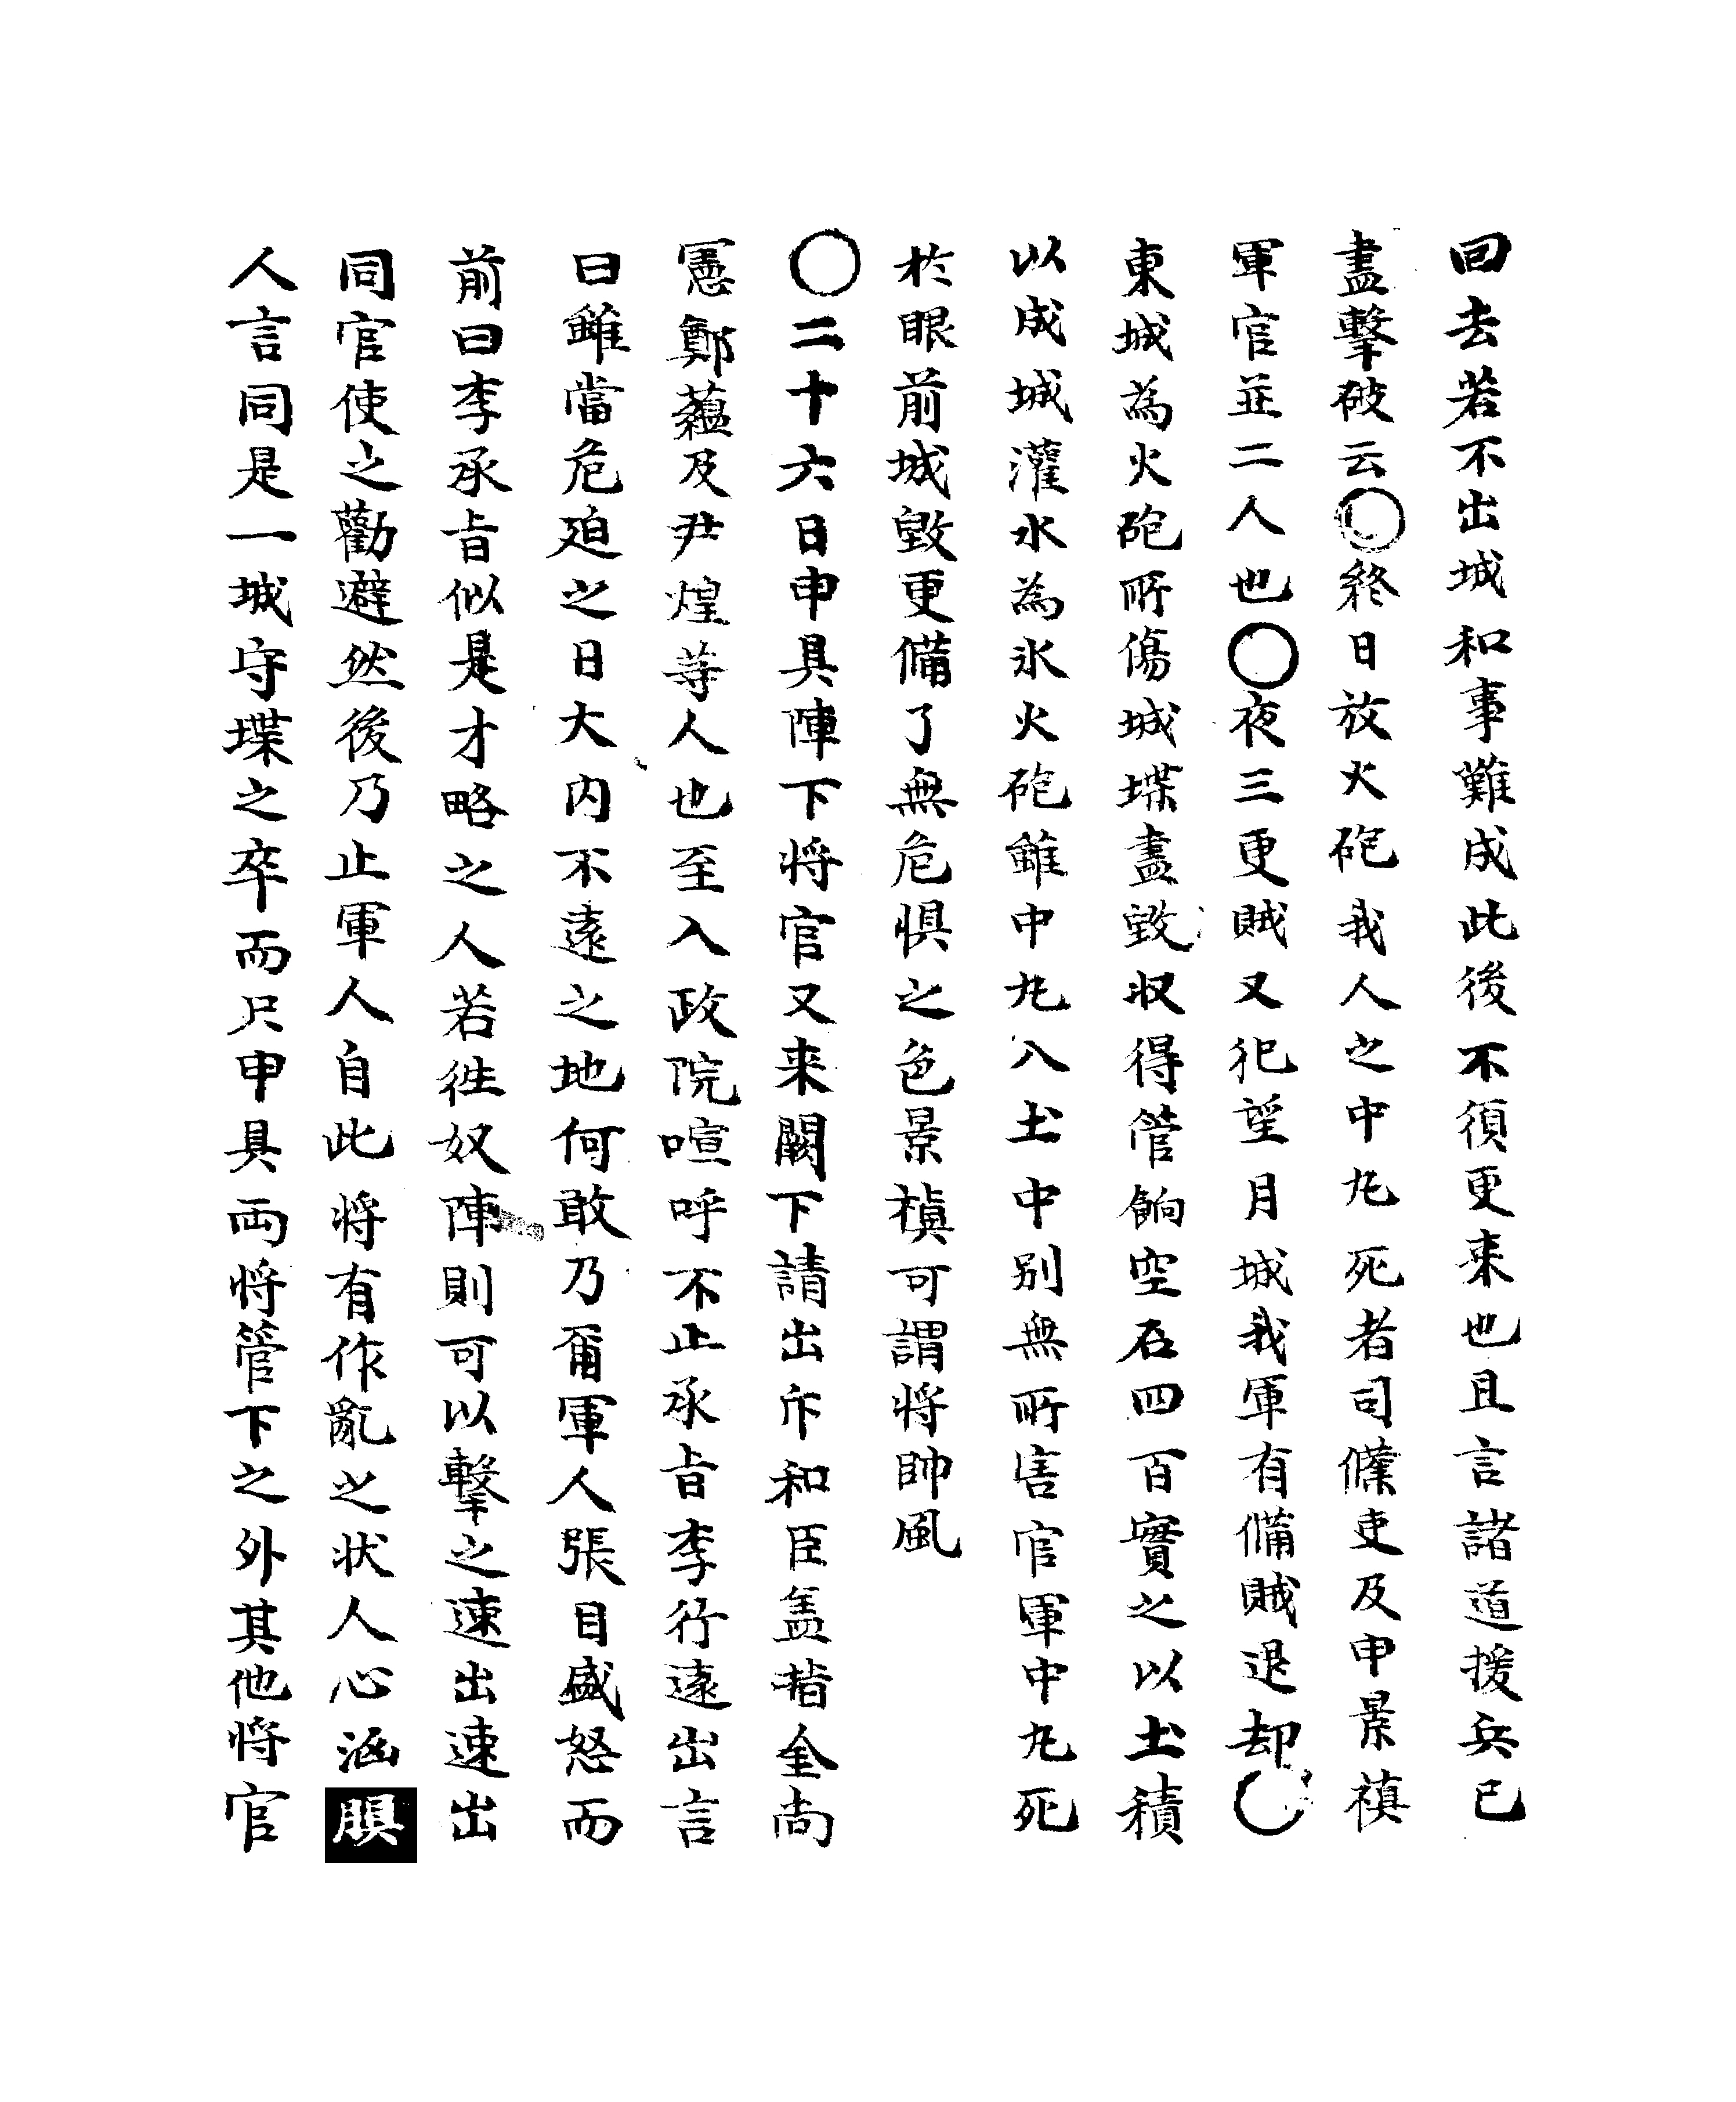 回去若不出城和事難成此後不須更来也且言諸道援兵已
盡擊破云○終日放火砲我人之中丸死者司㒒吏及申景禛
軍官並二人也○夜三更賊又犯望月城我軍有備賊退却○
東城為火砲所傷城堞盡毀収得管餉空石四百實之以土積
以成城灌水為氷火砲雖中丸入土中別無所害官軍中丸死
於眼前城毀更備了無危惧之色景禛可謂将帥風
○二十六日申具陣下将官又来闕下請出斥和臣盖指金尚
憲鄭蘊及尹煌等人也至入政院喧呼不止承旨李行遠出言
曰雖當危迫之日大内不遠之地何敢乃爾軍人張目盛怒而
前曰李承旨似是才略之人人若徃奴陣則可以擊之速出速出
同官使之勸避然後乃止軍人自此将有作亂之状人心洶惧
人言同是一城守堞之卒而只申具両将管下之外其他将官